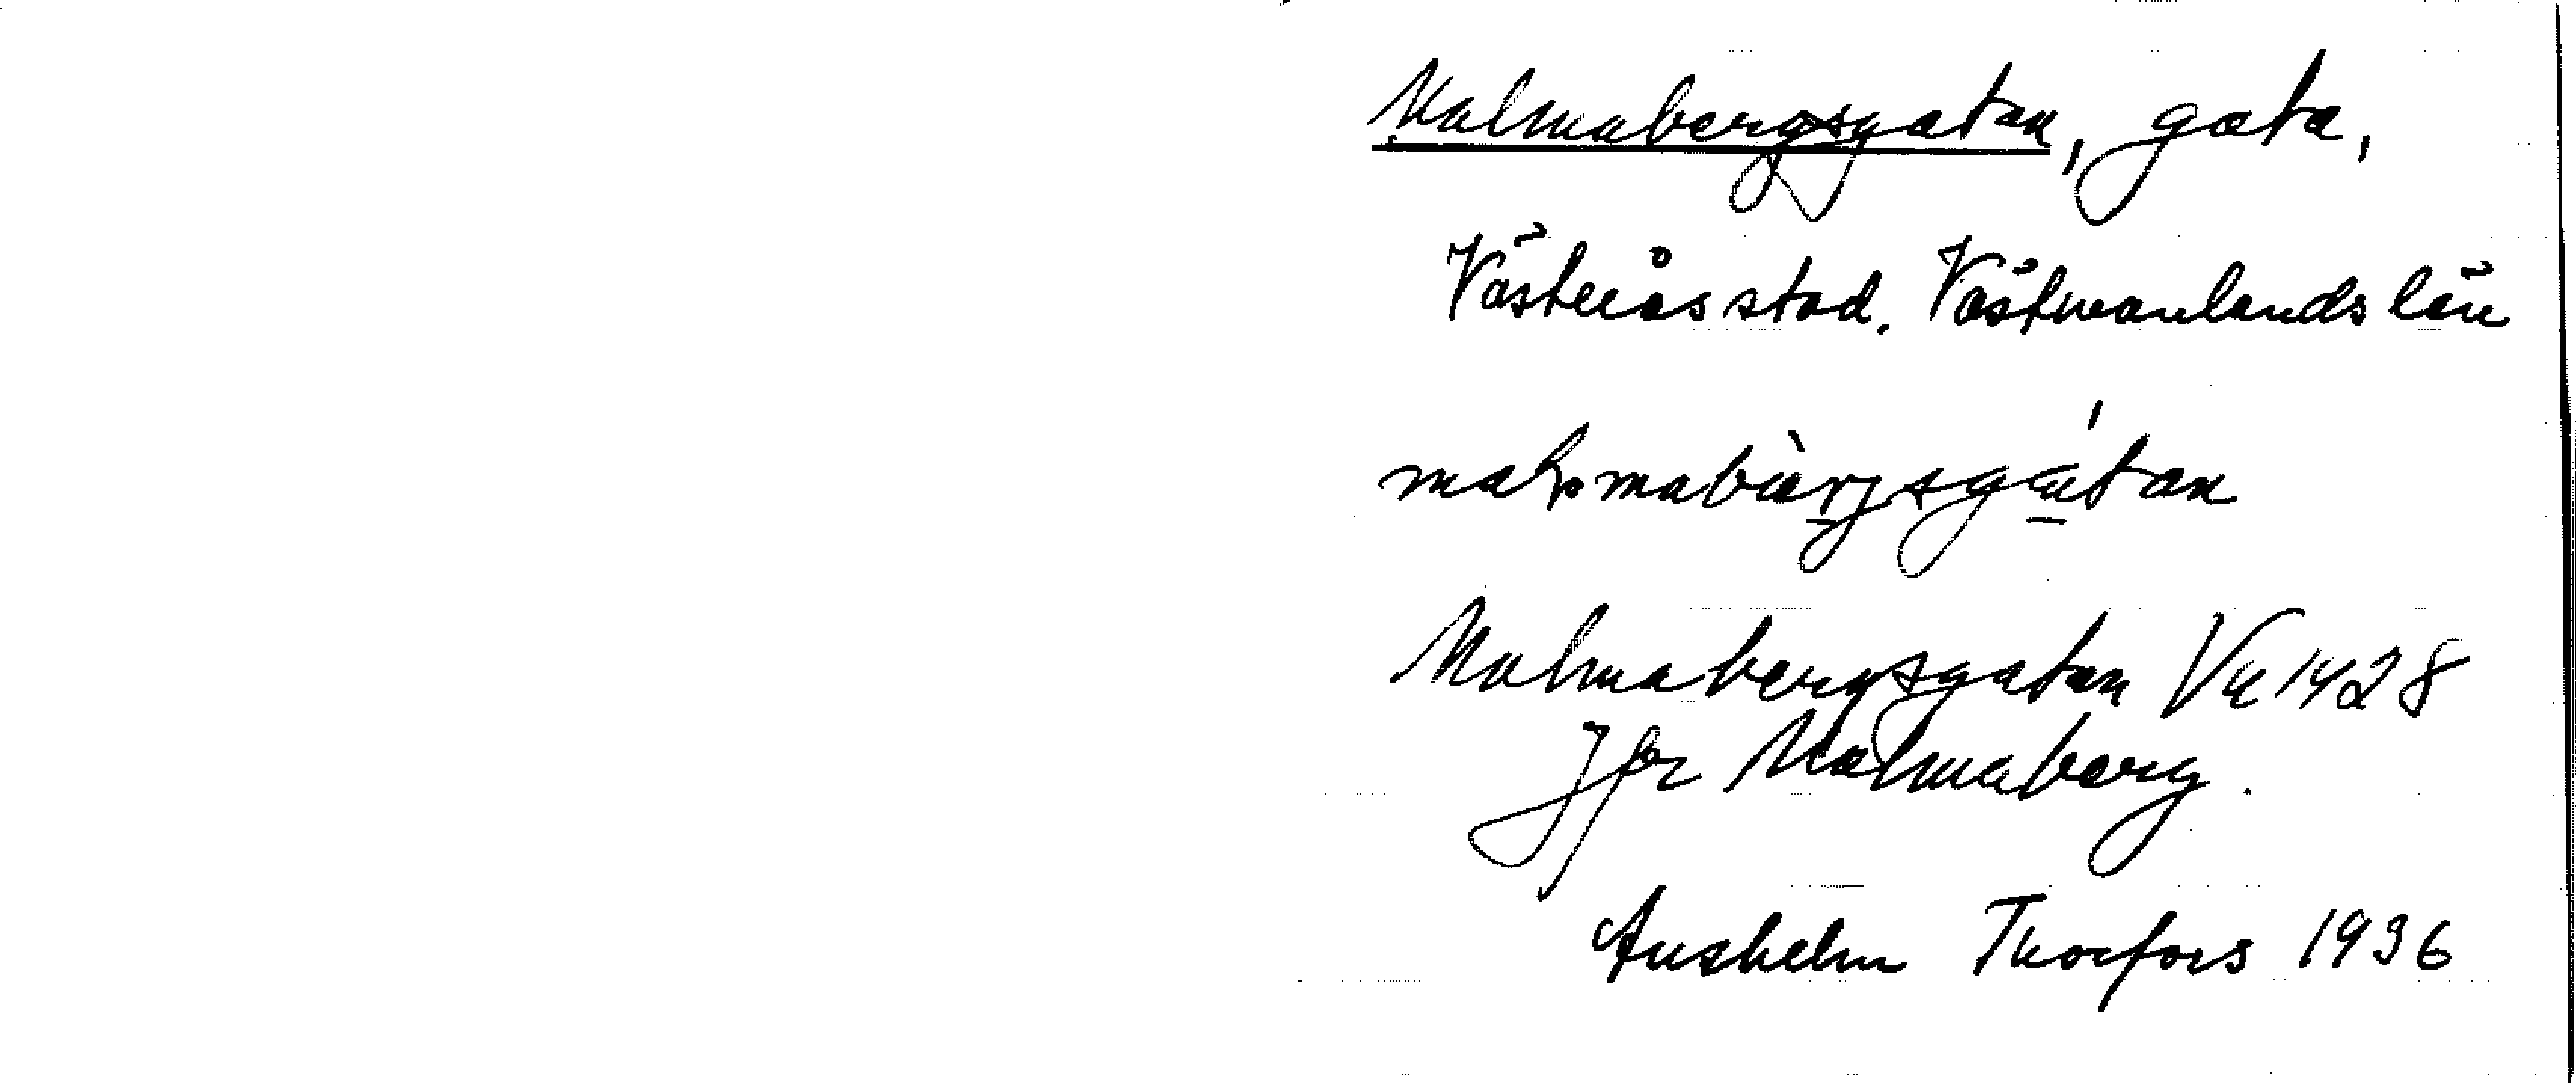 Malmabergsgatan, gata,
Västerås stad. Västmanlands län
malmabärjsgatan
Malmabergsgatan Vu 1428
Jfr Malmaberg.
Anshelm Thorfors 1936